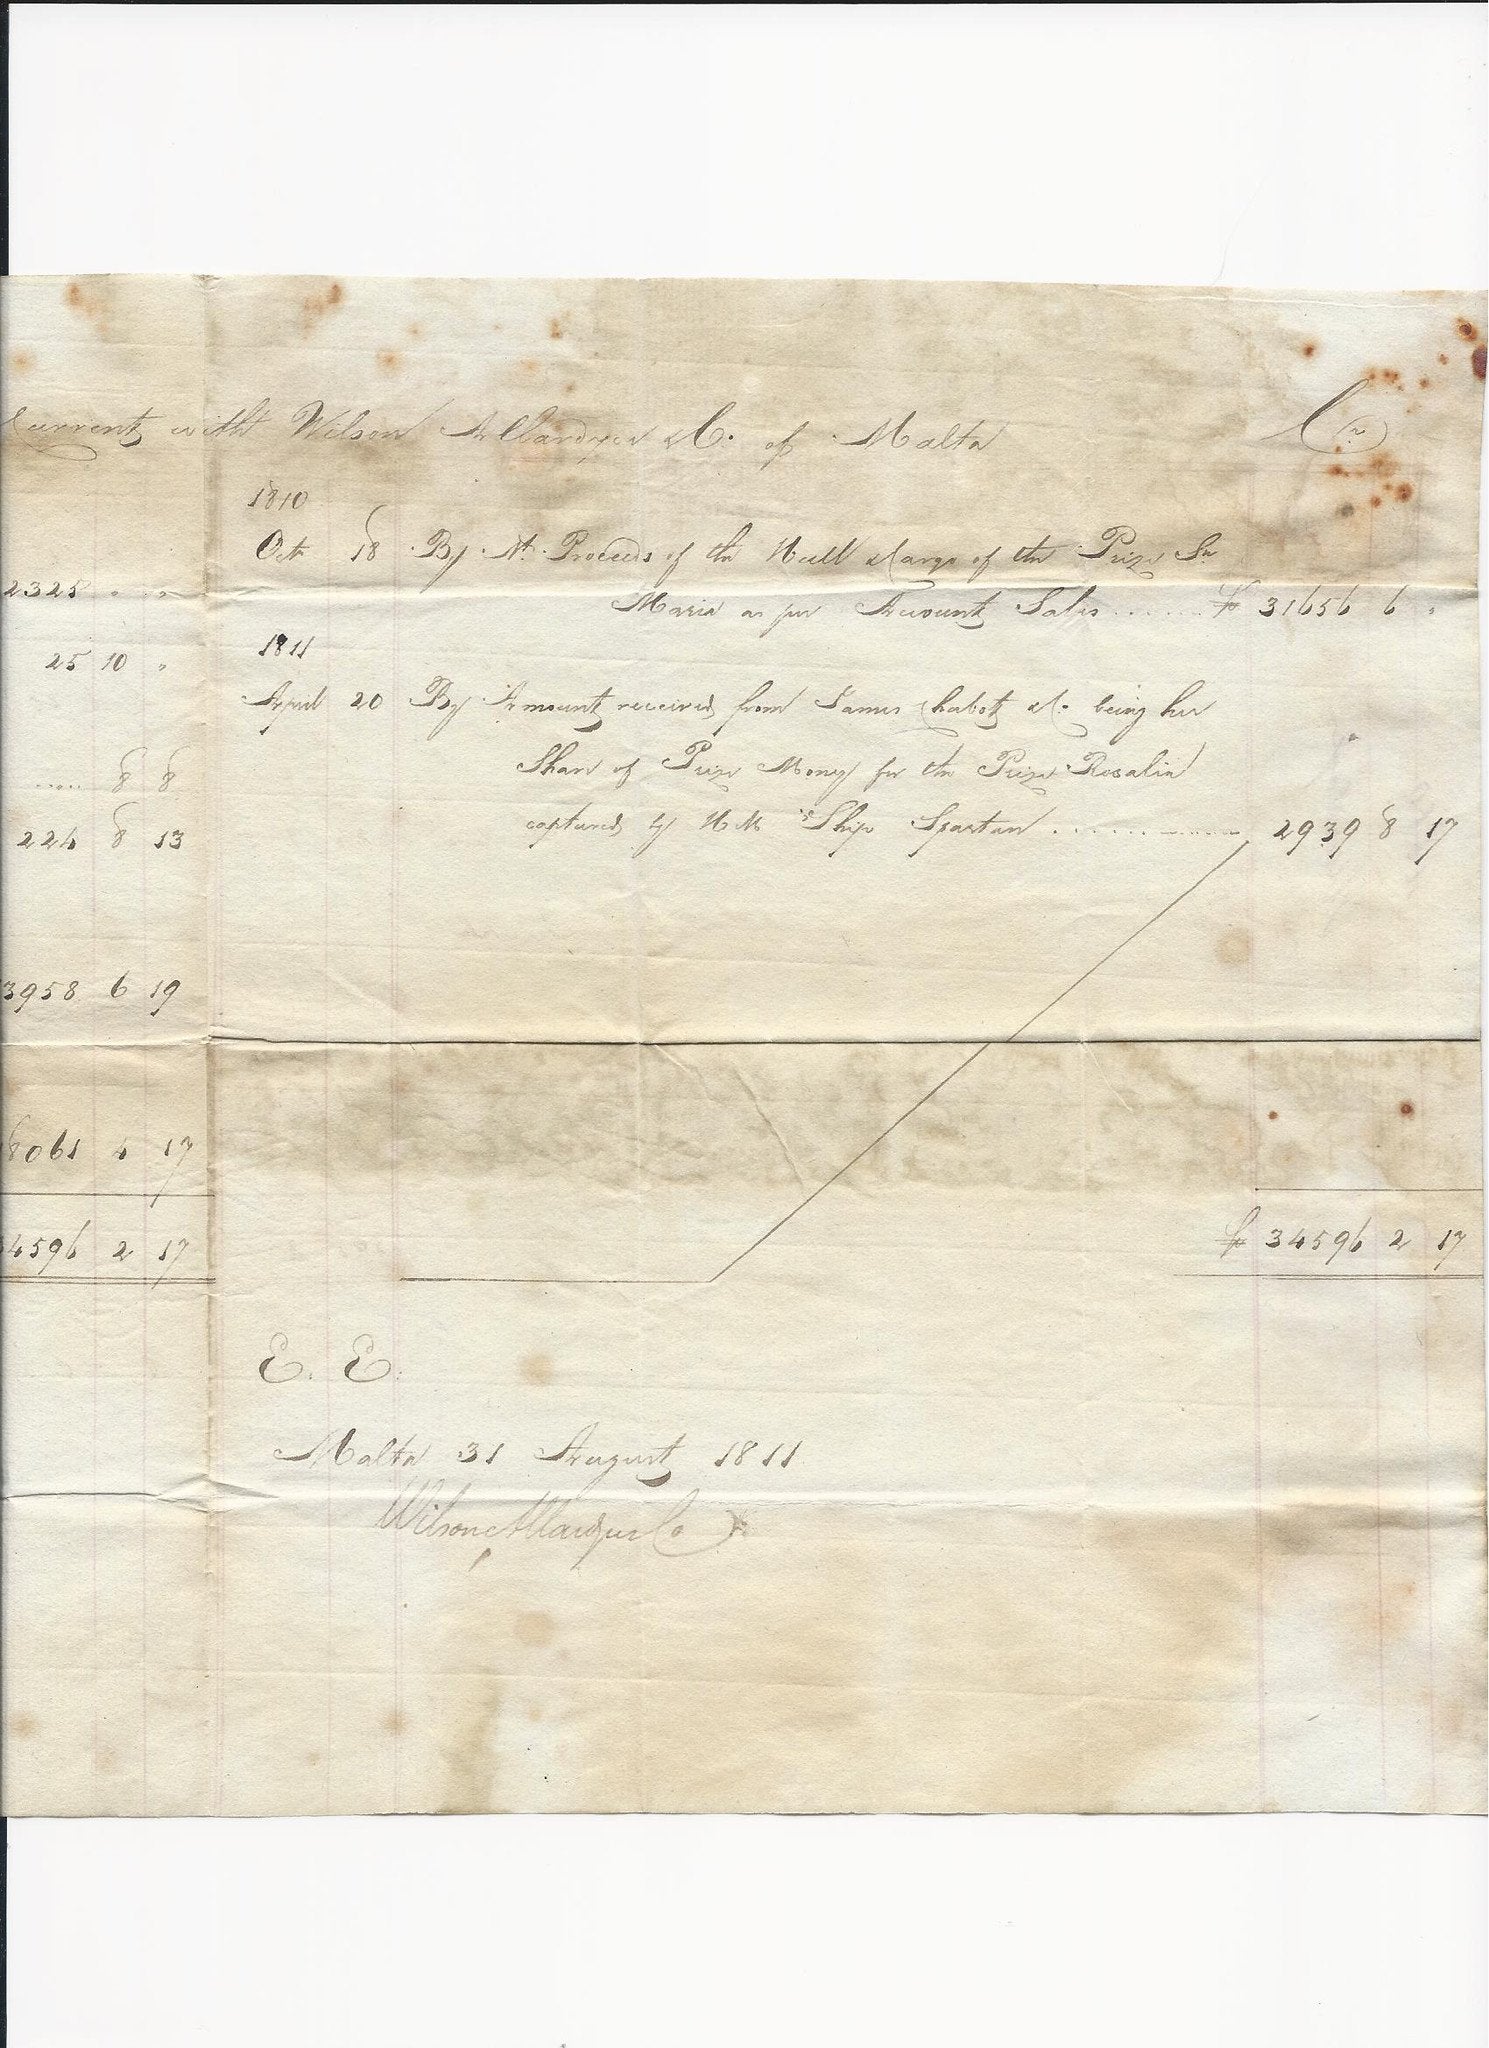 Current with Wilson Allardyce & Co. of Malta Cr
1810
Octr 18 By Nt. Proceeds of the Hull & Cargo of the Prize Sn
2325 " "
Maria as per Account Sales ..... $ 31656 6 "
1811
25 10 "
April 20 By Amount received from James Chabot & Co. being her
Share of Prize Money for the Prize Rosalia
..... 8 8
captured by H M 's Ship Spartan ........... 2939 8 17
224 8 13
3958 6 19
8061 4 17
34596 2 17
$ 34596 2 17
E. E.
Malta 31 August 1811
Wilson Allardyce Co